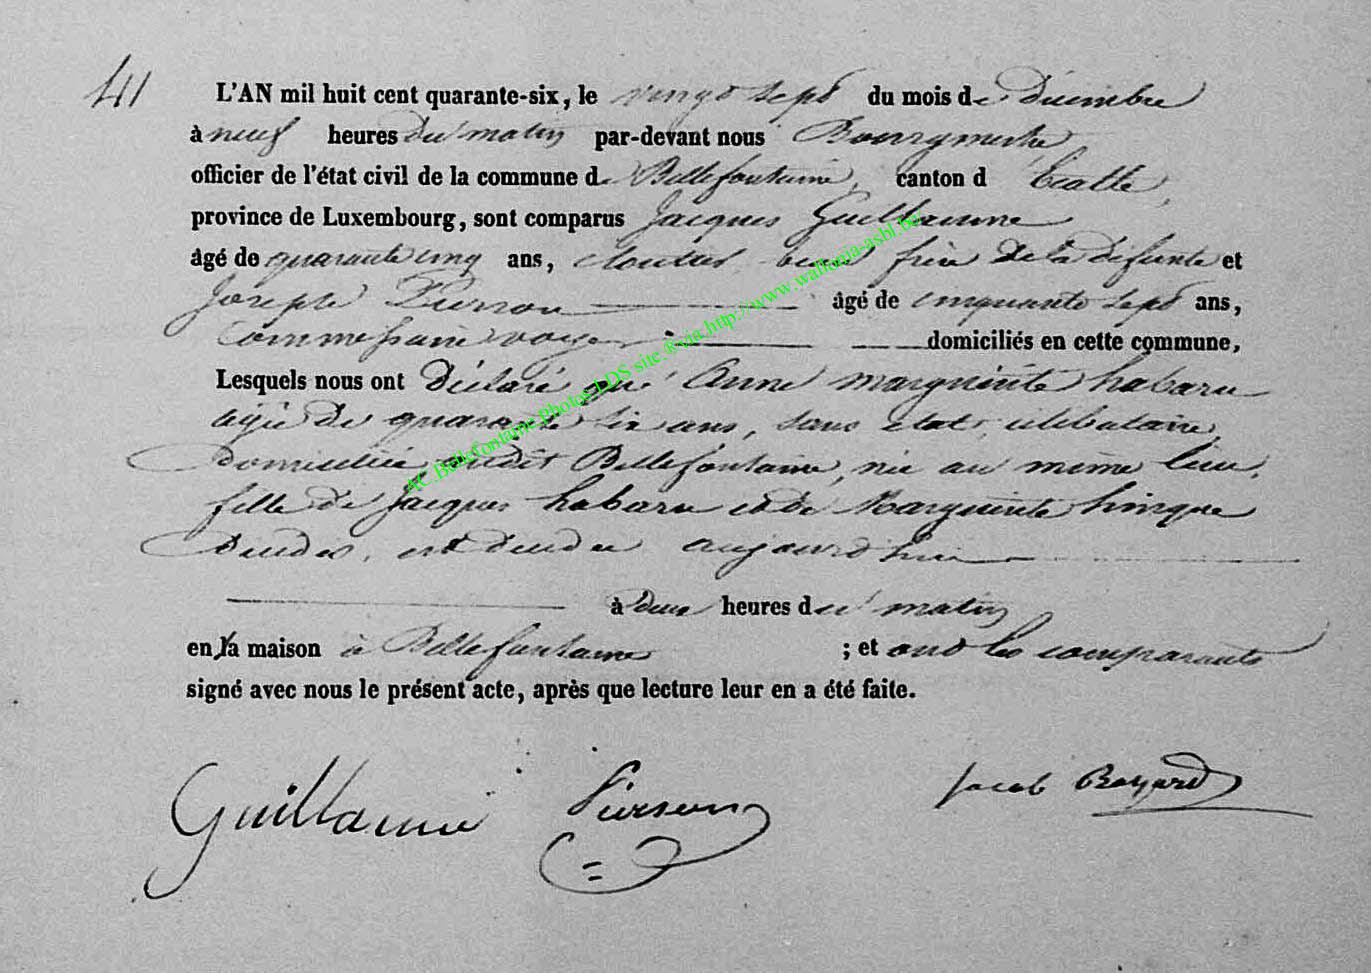 41
L'AN mil huit cent quarante-six, le vingt sept du mois de décembre
à neuf heures du matin par-devant nous Bourgmestre,
officier de l'état civil de la commune de Bellefontaine, canton d'Etalle,
province de Luxembourg, sont comparus Jacques Guillaume
âgé de quarante cinq ans, cloutier beau frère de la défunte et
Joseph Pierson âgé de cinquante sept ans,
commissaire voyer domiciliés en cette commune,
Lesquels nous ont déclaré que Anne marguerite habaru
agée de quarante six ans, sans état, célibataire,
domiciliée audit Bellefontaine, née au même lieu,
fille de Jacques habaru et de Marguerite hinque
décédés, est décédée aujourd'hui
à deux heures du matin
en la maison à Bellefontaine ; et ont les comparants
signé avec nous le présent acte, après que lecture leur en a été faite.
Guillaume Pierson Jacob Bayard
AC Bellefontaine Photos LDS site via http://www.wallonia-asbl.be/